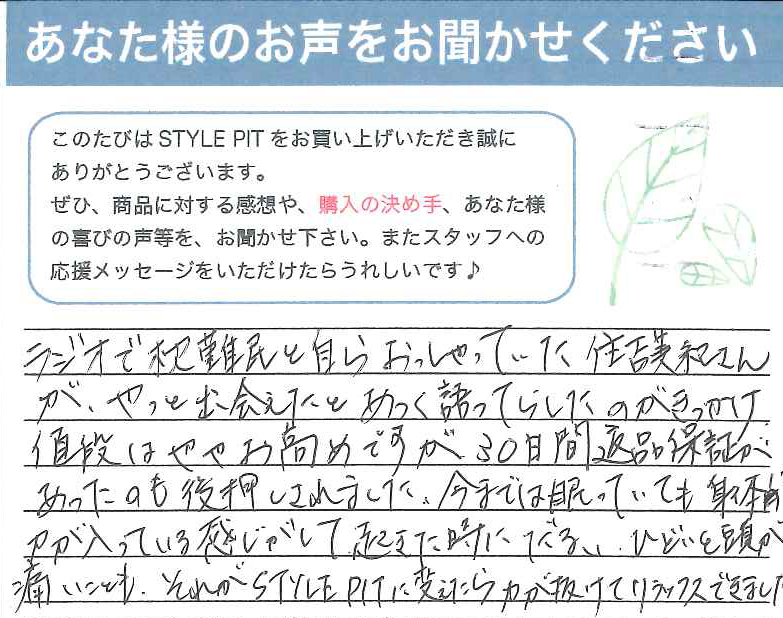 あなた様のお声をお聞かせください
このたびは STYLE PIT をお買い上げいただき誠に
ありがとうございます。
ぜひ、商品に対する感想や、購入の決め手、あなた様
の喜びの声等を、お聞かせ下さい。またスタッフへの
応援メッセージをいただけたらうれしいです♪
ラジオで枕難民と自らおっしゃっていた住吉美紀さん
が、やっと出会えたとあつく語ってらしたのがきっかけ
値段はややお高めですが30日間返品保証が
あったのも後押しされました、今までは眠っていても身体
力が入っている感じがして起きた時にだるい、ひどいと頭が
痛いことも、それがSTYLE PITに変えたら力が抜けてリラックスできました